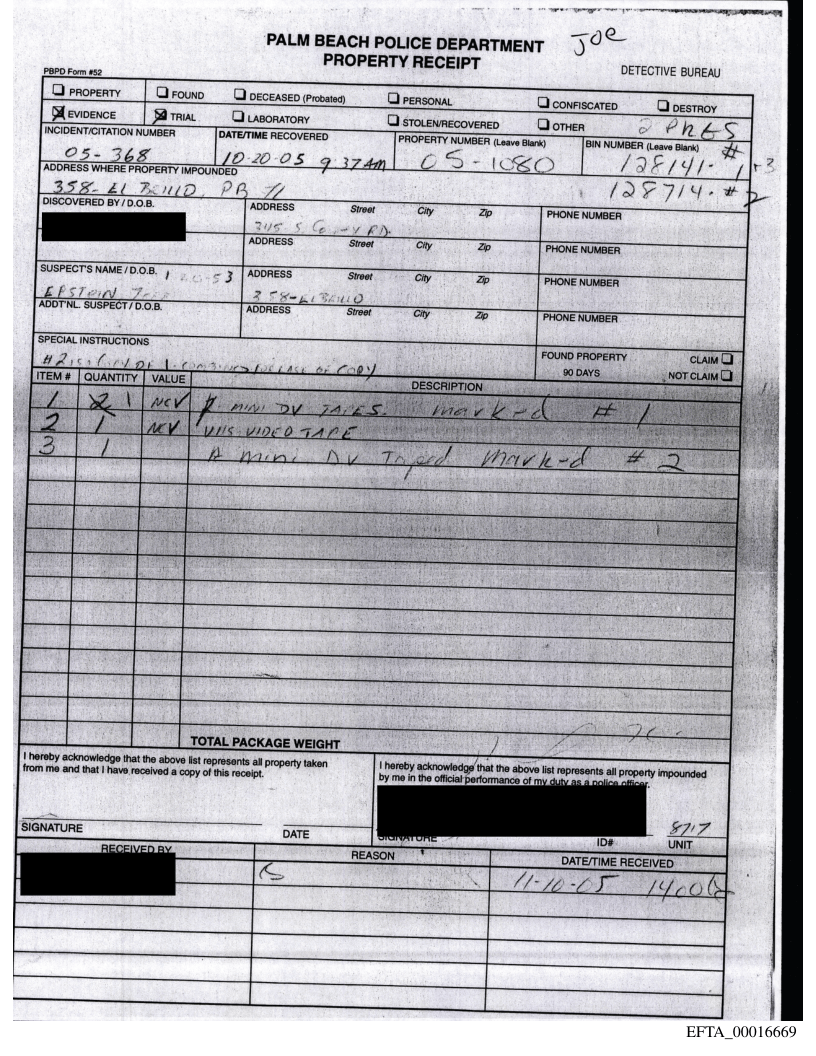 Joe
PALM BEACH POLICE DEPARTMENT
PROPERTY RECEIPT
PBPD Form #52
DETECTIVE BUREAU
PROPERTY FOUND DECEASED (Probated) PERSONAL CONFISCATED DESTROY
EVIDENCE TRIAL LABORATORY STOLEN/RECOVERED OTHER 2 PKES
INCIDENT/CITATION NUMBER DATE/TIME RECOVERED PROPERTY NUMBER (Leave Blank) BIN NUMBER (Leave Blank)
05-368 10-20-05 9 37 AM 05-1080 128141- # 1+3
ADDRESS WHERE PROPERTY IMPOUNDED
358- El Brillo, PB Fl 128714- # 2
DISCOVERED BY / D.O.B. ADDRESS Street City Zip PHONE NUMBER
345 S RD.
ADDRESS Street City Zip PHONE NUMBER
SUSPECT'S NAME / D.O.B. 1 20-53 ADDRESS Street City Zip PHONE NUMBER
EPSTEIN 358- El Brillo
ADDT'NL. SUSPECT / D.O.B. ADDRESS Street City Zip PHONE NUMBER
SPECIAL INSTRUCTIONS FOUND PROPERTY CLAIM
#2 is COPY OF 1- OF COPY 90 DAYS NOT CLAIM
ITEM # QUANTITY VALUE DESCRIPTION
1 2 1 NCV MINI DV TAPES. Mark-d # 1
2 1 NCV VHS VIDEO TAPE
3 1 A mini DV Taped Mark-d # 2
TOTAL PACKAGE WEIGHT
I hereby acknowledge that the above list represents all property taken
from me and that I have received a copy of this receipt.
I hereby acknowledge that the above list represents all property impounded
by me in the official performance of my duty as a police officer.
8717
SIGNATURE DATE SIGNATURE ID# UNIT
RECEIVED BY REASON DATE/TIME RECEIVED
11-10-05 1400
EFTA_00016669